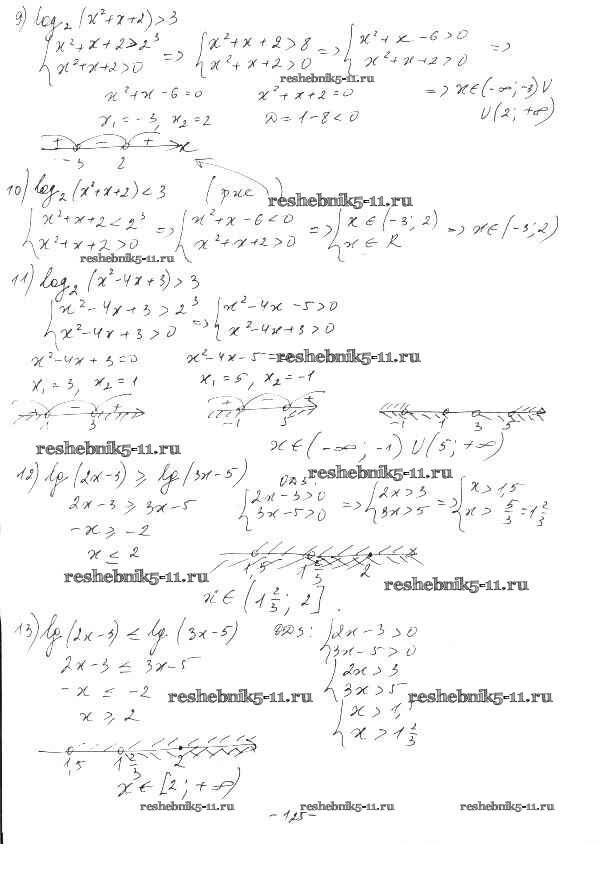 9) log₂ (x²+x+2) > 3
{ x²+x+2 > 2³ => { x²+x+2 > 8 => { x²+x-6 > 0 =>
{ x²+x+2 > 0 { x²+x+2 > 0 { x²+x+2 > 0
reshebnik5-11.ru
x²+x-6=0 x²+x+2=0 => x∈(-∞; -3) ∪
x₁ = -3, x₂ = 2 D = 1-8 < 0 ∪(2; +∞)
+ - + x
-3 2
10) log₂ (x²+x+2) < 3 (рис ) reshebnik5-11.ru
{ x²+x+2 < 2³ => { x²+x-6 < 0 => { x ∈ (-3; 2) => x∈(-3; 2)
{ x²+x+2 > 0 { x²+x+2 > 0 { x ∈ R
reshebnik5-11.ru
11) log₂ (x²-4x+3) > 3
{ x²-4x+3 > 2³ => { x²-4x-5 > 0
{ x²-4x+3 > 0 { x²-4x+3 > 0
x²-4x+3=0 x²-4x-5= reshebnik5-11.ru
x₁ = 3, x₂ = 1 x₁ = 5, x₂ = -1
+ - + + - +
1 3 -1 5 -1 1 3 5
reshebnik5-11.ru x∈(-∞; -1) ∪ (5; +∞)
12) lg (2x-3) ⩾ lg (3x-5) reshebnik5-11.ru
2x-3 ⩾ 3x-5 ОДЗ: { 2x-3>0 => { 2x>3 => { x > 1,5
-x ⩾ -2 { 3x-5>0 { 3x>5 { x > 5/3 = 1 2/3
x ≤ 2
1,5 1 2/3 2
reshebnik5-11.ru reshebnik5-11.ru
x ∈ (1 2/3; 2].
13) lg (2x-3) ≤ lg (3x-5) ОДЗ: { 2x-3 > 0
2x-3 ≤ 3x-5 { 3x-5 > 0
-x ≤ -2 { 2x > 3
reshebnik5-11.ru { 3x > 5 reshebnik5-11.ru
x ⩾ 2 { x > 1,
{ x > 1 2/3
1,5 1 2/3 2
x ∈ [2; +∞)
reshebnik5-11.ru reshebnik5-11.ru reshebnik5-11.ru
- 125 -